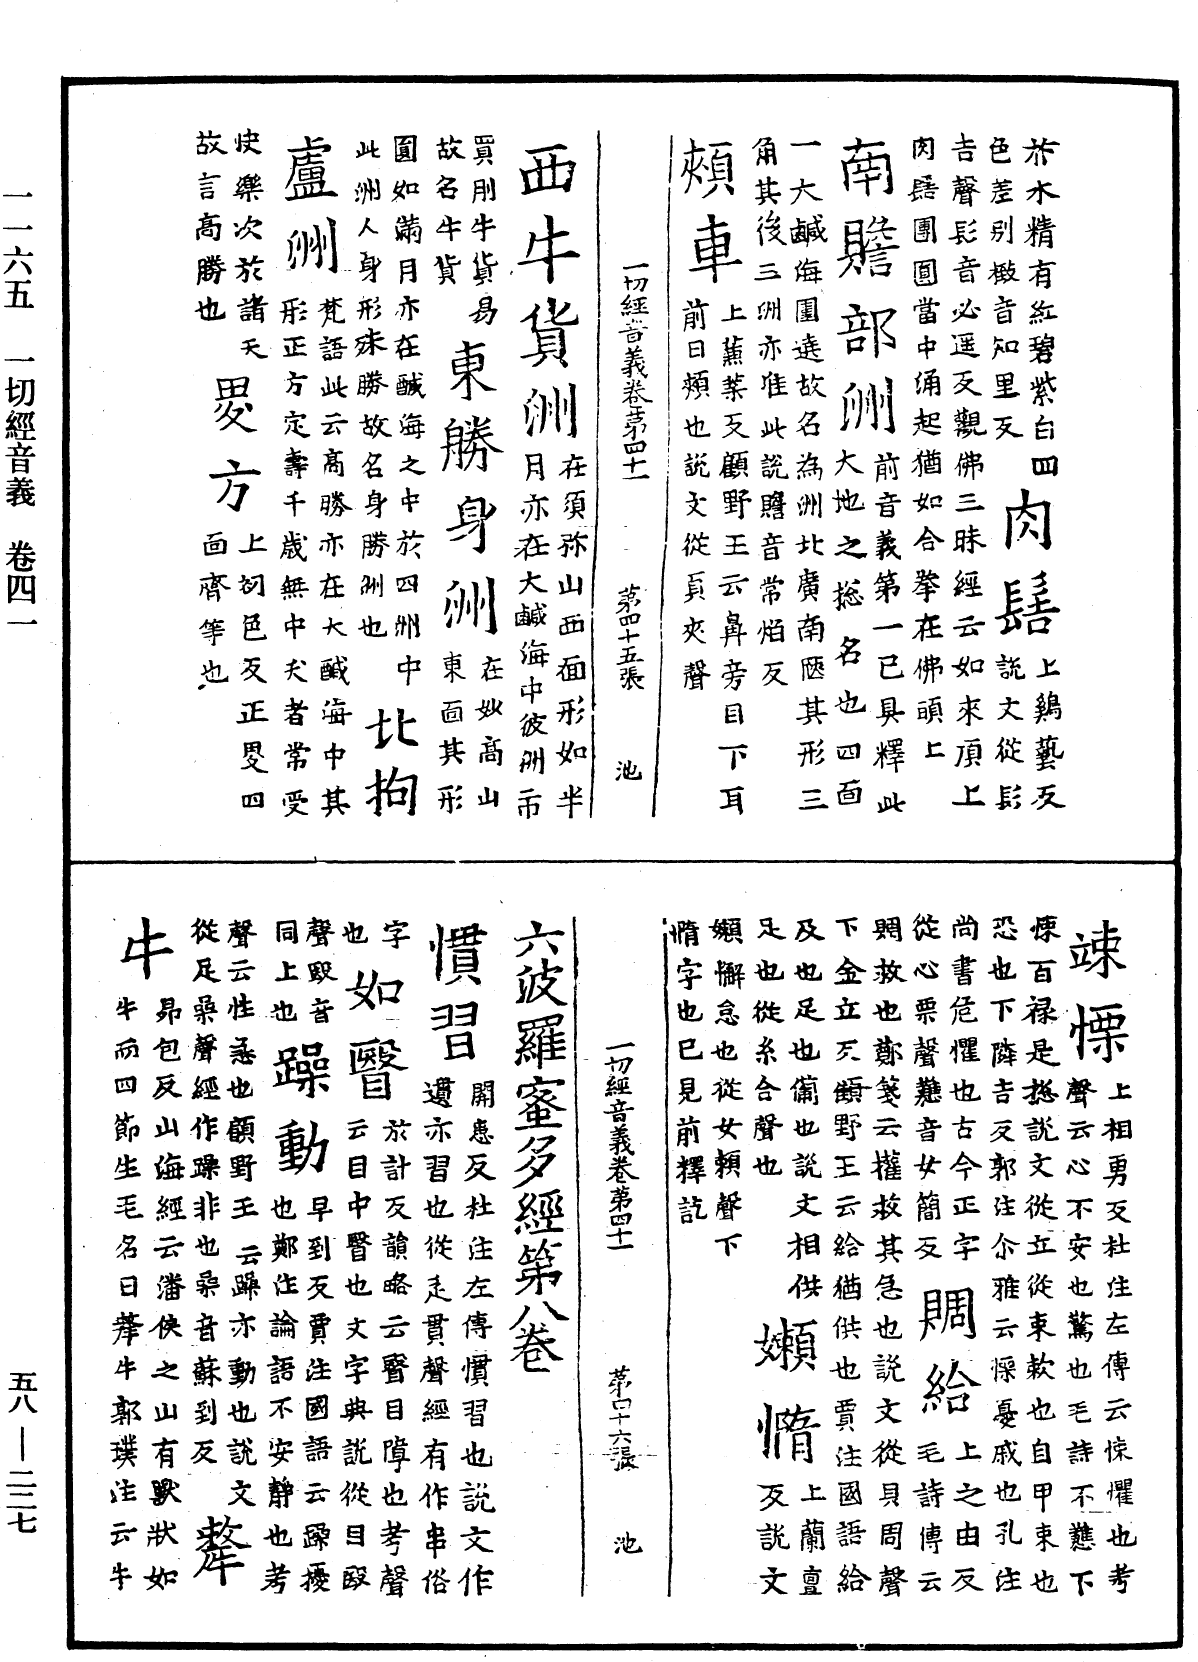 水精有紅碧紫白四
色差別檄音知里反
肉髻
上鷄藝反
說文從髟
吉聲髟音必遥反觀佛三昧經云如來頂上
肉髻團圓當中涌起猶如合拳在佛頭上
南贍部洲
前音義第一已具釋此
大地之揔名也四面
一大鹹海圍遶故名為洲北廣南陿其形三
角其後三洲亦准此說贍音常焰反
頰車
上蒹葉反顧野王云鼻旁目下耳
前曰頰也說文從頁夾聲
一切經音義卷第四十一　第四十五張　池
西牛貨洲
在須弥山西面形如半
月亦在大鹹海中彼洲市
買用牛貨易
故名牛貨
東勝身洲
在妙高山
東面其形
圓如滿月亦在鹹海之中於四洲中
此洲人身形殊勝故名身勝洲也
北拘
盧洲
梵語此云高勝亦在大鹹海中其
形正方定壽千歲無中夭者常受
快樂次於諸天
故言高勝也
畟方
上初色反正畟四
面齊等也
竦慄
上相勇反杜注左傳云悚懼也考
聲云心不安也驚也毛詩不戁下
悚百禄是揔說文從立從束欶也自申束也
恐也下隣吉反郭注尒雅云慄憂戚也孔注
尚書危懼也古今正字
從心栗聲戁音女簡反
賙給
上之由反
毛詩傳云
賙救也鄭箋云權救其急也說文從貝周聲
下金立反顧野王云給猶供也賈注國語給
及也足也備也說文相供
足也從糸合聲也
嬾惰
上蘭亶
反說文
嬾懈怠也從女賴聲下
惰字也已見前釋訖
一切經音義卷第四十一　第四十六張　池
六波羅蜜多經第八卷
慣習
開患反杜注左傳慣習也說文作
遺亦習也從辵貫聲經有作串俗
字
也
如瞖
於計反韻略云瞖目障也考聲
云目中瞖也文字典說從目殹
聲殹音
同上也
躁動
早到反賈注國語云躁擾
也鄭注論語不安靜也考
聲云性急也顧野王云躁亦動也說文
從足喿聲經作躁非也喿音蘇到反
犛
牛
昴包反山海經云潘侯之山有獸狀如
牛而四節生毛名曰犛牛郭璞注云牛
一一六五　一切經音義　卷四一
五八—二二七